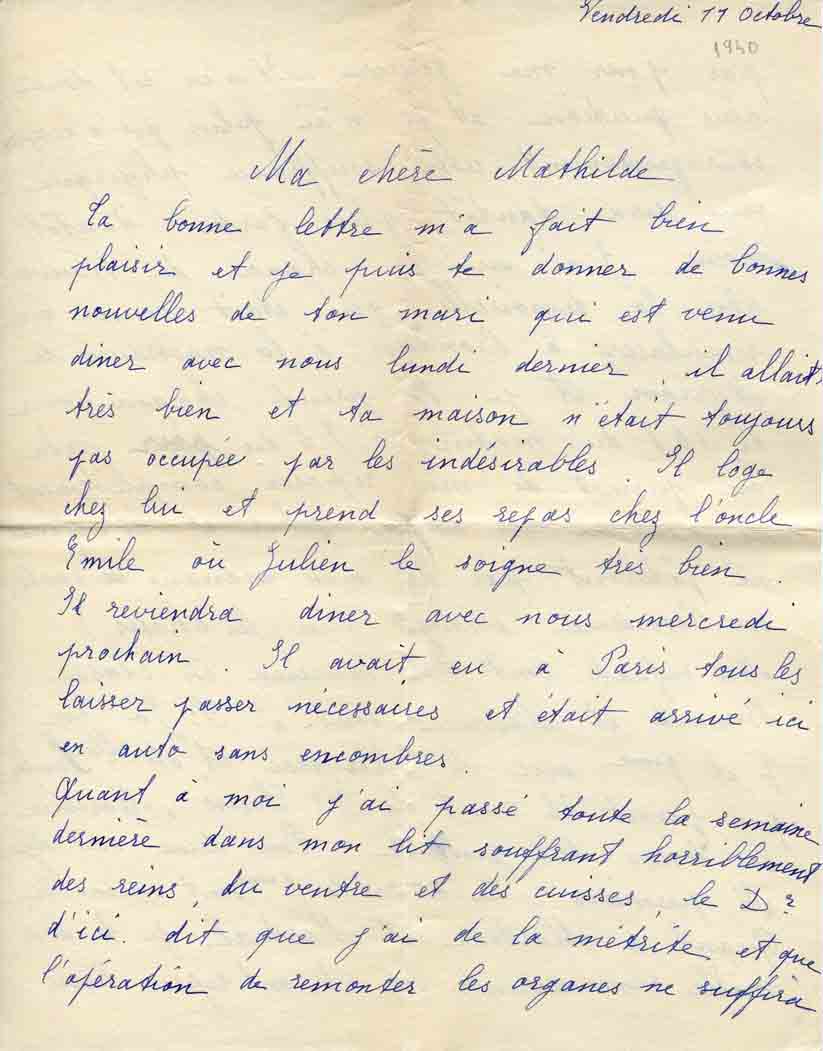 Vendredi 11 Octobre
1940
Ma chère Mathilde
Ta bonne lettre m'a fait bien
plaisir et je puis te donner de bonnes
nouvelles de ton mari qui est venu
diner avec nous lundi dernier, il allait
très bien et ta maison n'était toujours
pas occupée par les indésirables. Il loge
chez lui et prend ses repas chez l'oncle
Emile où Julien le soigne très bien.
Il reviendra diner avec nous mercredi
prochain. Il avait eu à Paris tous les
laisser passer nécessaires et était arrivé ici
en auto sans encombres.
Quant à moi j'ai passé toute la semaine
dernière dans mon lit souffrant horriblement
des reins, du ventre et des cuisses, le Dr
d'ici dit que j'ai de la métrite et que
l'opération de remonter les organes ne suffira